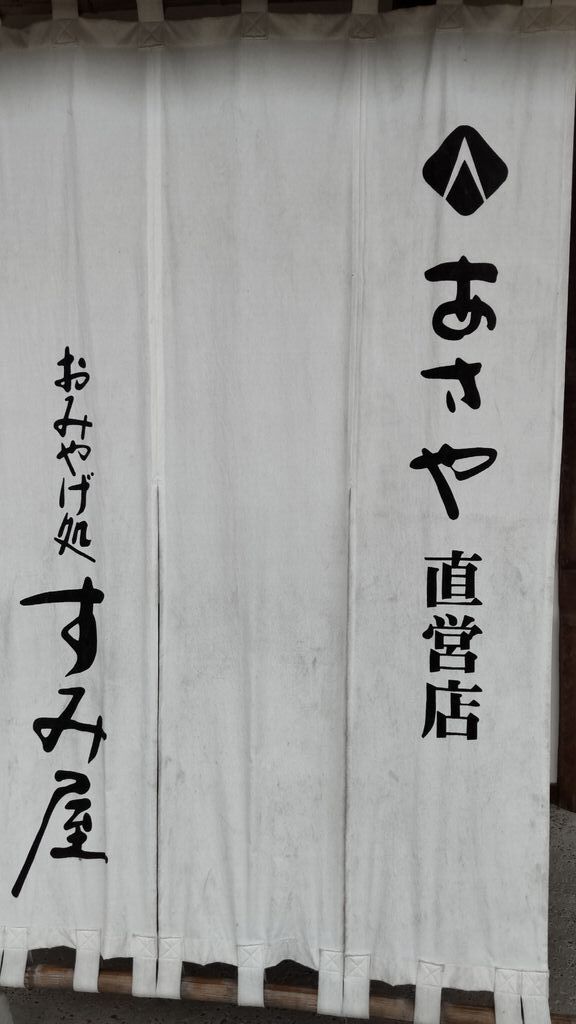 あさや 直営店
おみやげ処
すみ屋